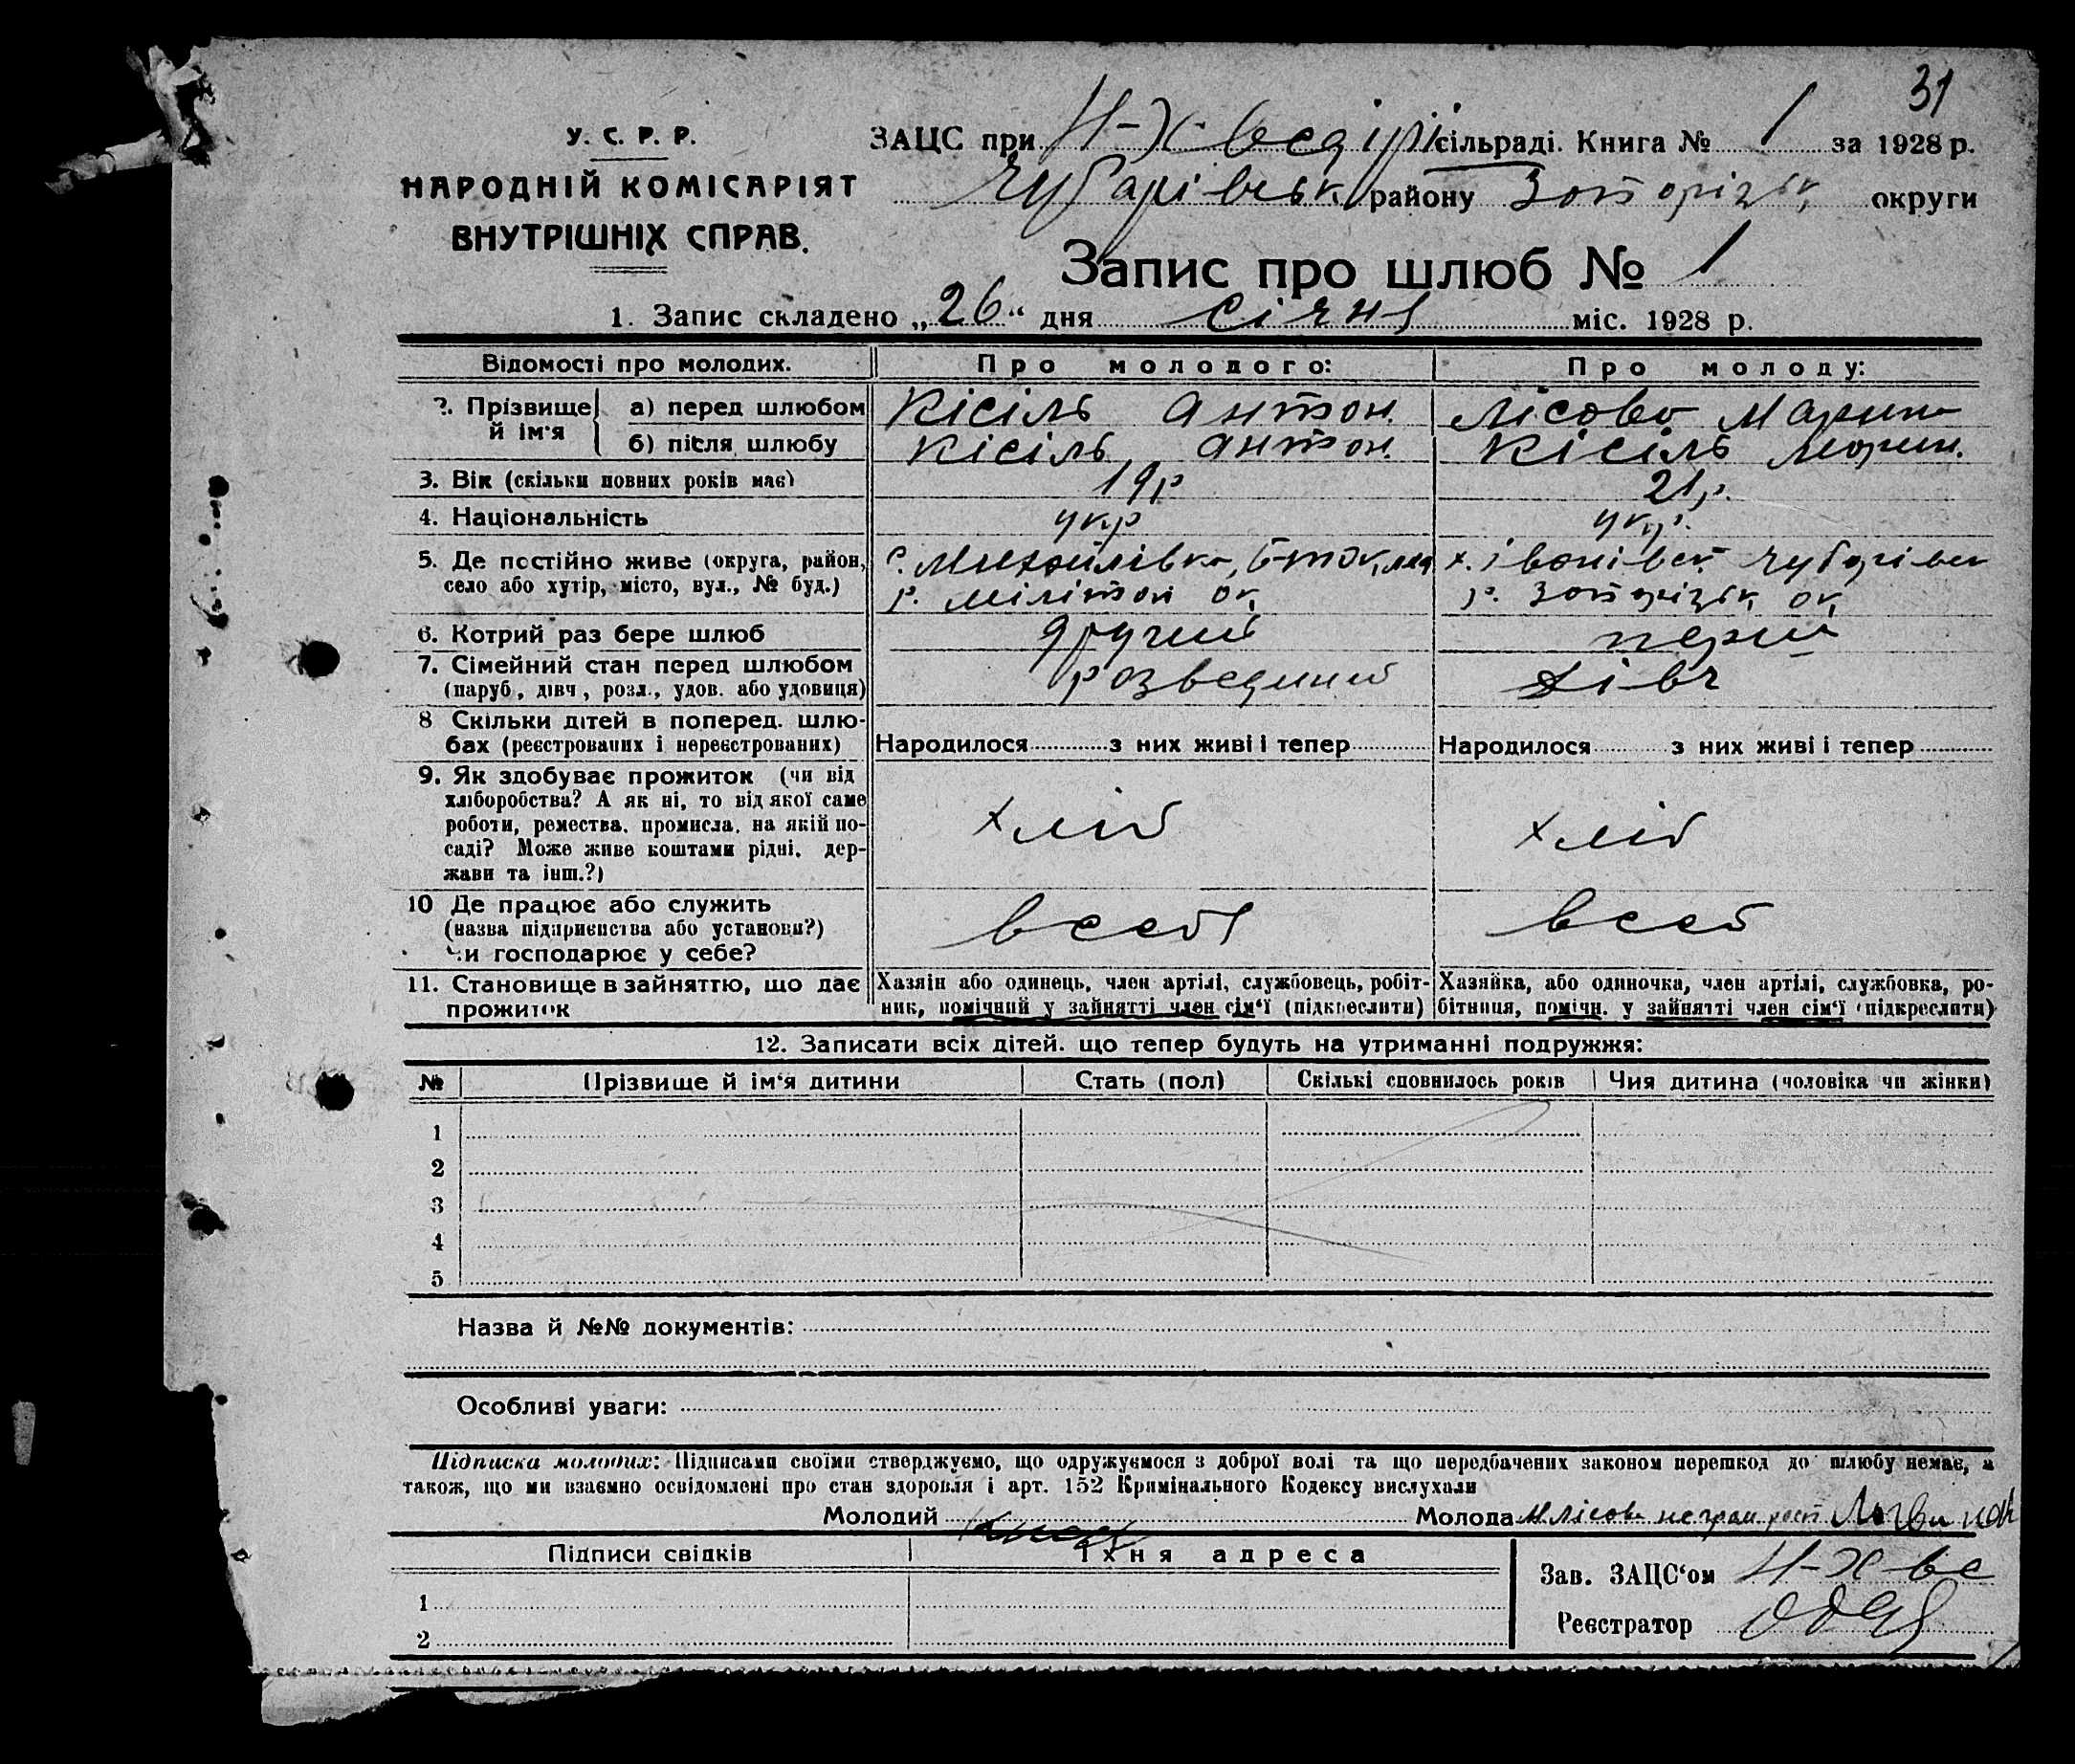 31
У. С. Р. Р.
НАРОДНІЙ КОМІСАРІЯТ
ВНУТРІШНІХ СПРАВ.
ЗАЦС при сільраді. Книга № 1 за 1928 р.
Чубарівськ району Запорізьк округи
Запис про шлюб № 1
1. Запис складено „26“ дня січня міс. 1928 р.
Відомості про молодих. Про молодого: Про молоду:
2. Прізвище й ім'я а) перед шлюбом Кісіль Антон Лісова Марина
б) після шлюбу Кісіль Антон. Кісіль Марин.
3. Вік (скільки повних років має) 19 р 21 р.
4. Національність укр укр.
5. Де постійно живе (округа, район, с. Михайлівка, х. Іванівськ Чубарівськ
село або хутір, місто, вул., № буд.) р. Меліт ок р. Запорізьк ок
6. Котрий раз бере шлюб другий перш
7. Сімейний стан перед шлюбом розведений дівч
(паруб., дівч., розл., удов. або удовиця)
8 Скільки дітей в поперед. шлю-
бах (реєстрованих і нереєстрованих) Народилося з них живі і тепер Народилося з них живі і тепер
9. Як здобуває прожиток (чи від
хліборобства? А як ні, то від якої саме
роботи, ремества, промисла, на якій по- хліб хліб
саді? Може живе коштами рідні, дер-
жави та інш.?)
10 Де працює або служить
(назва підприємства або установи?) всебя всеб
Чи господарює у себе?
11. Становище в зайняттю, що дає Хазяін або одинець, член артілі, службовець, робіт- Хазяйка, або одиночка, член артілі, службовка, ро-
прожиток ник, помічний у зайнятті член сім'ї (підкреслити) бітниця, помічн. у зайнятті член сім'ї (підкреслити)
12. Записати всіх дітей. що тепер будуть на утриманні подружжя:
№ Прізвище й ім'я дитини Стать (пол) Скількі сповнилось років Чия дитина (чоловіка чи жінки)
1
2
3
4
5
Назва й №№ документів:
Особливі уваги:
Підписка молодих: Підписами своїми стверджуємо, що одружуємося з доброї волі та що передбачених законом перешкод до шлюбу немає, а
також, що ми взаємно освідомлені про стан здоровля і арт. 152 Кримінального Кодексу вислухали
Молодий Молода М Лісова неграм
Підписи свідків Їхня адреса
1
2
Зав. ЗАЦС'ом
Реєстратор